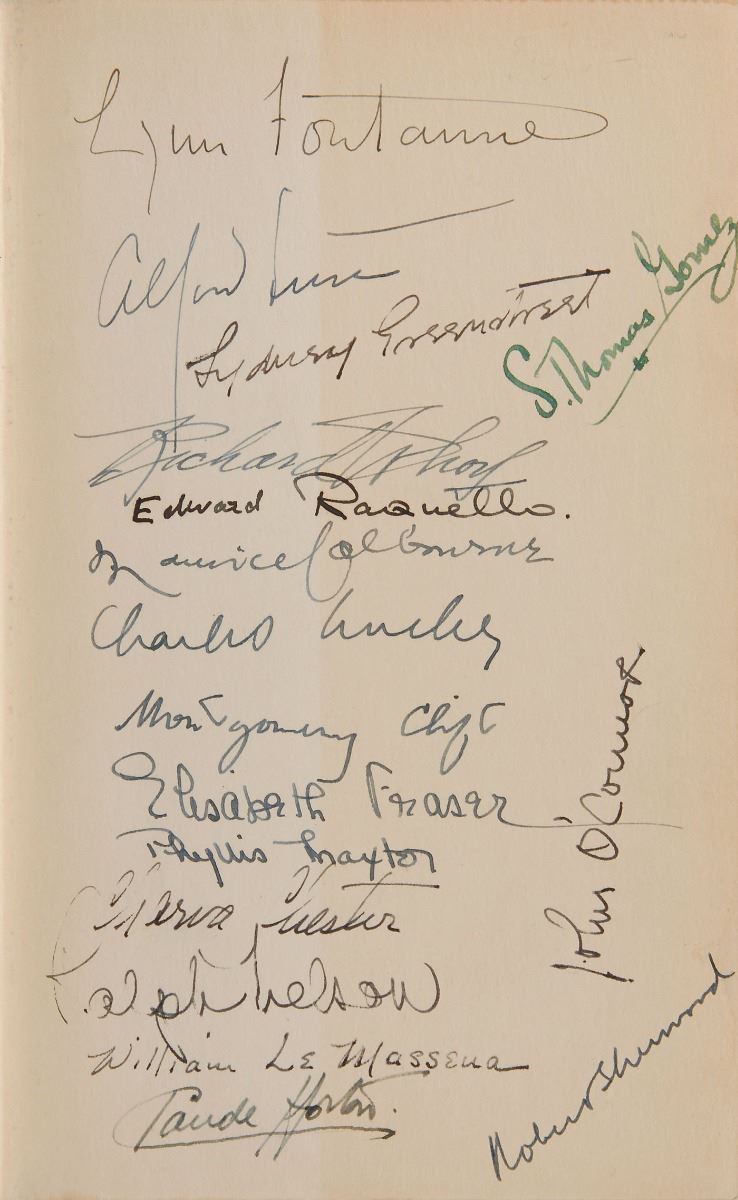 Lynn Fontanne
Alfred Lunt
Sydney Greenstreet
S. Thomas Gomez
Richard Whorf
Edward Raquello.
Maurice Colbourne
Charles Ansley
Montgomery Clift
Elisabeth Fraser
Phyllis Thaxter
John O'Connor
Charva Chester
Ralph Nelson
William Le Massena
Claude Horton.
Robert Sherwood